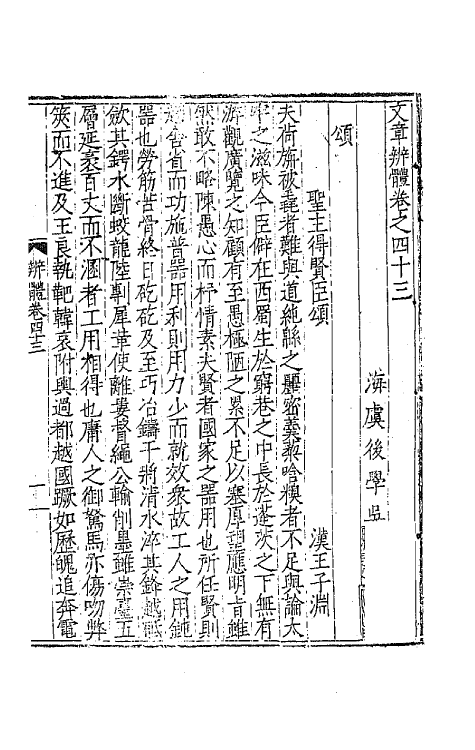 文章辨體卷之四十三
海虞後學
頌
聖主得賢臣頌 漢王子淵
夫荷旃被毳者難與道純緜之麗密羹藜唅糗者不足與論太
牢之滋味今臣僻在西蜀生於窮巷之中長於蓬茨之下無有
游觀廣覽之知顧有至愚極陋之累不足以塞厚望應明旨雖
然敢不略陳愚心而抒情素夫賢者國家之器用也所任賢則
舍省而功施普器用利則用力少而就效衆故工人之用鈍
器也勞筋苦骨終日矻矻及至巧冶鑄干將清水淬其鋒越砥
斂其鍔水斷蛟龍陸剸犀革使離婁督繩公輸削墨雖崇臺五
層延袤百丈而不溷者工用相得也庸人之御駑馬亦傷吻弊
筴而不進及王良執靶韓哀附輿過都越國蹶如歷塊追奔電
辨體卷四十三
一